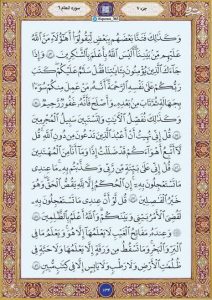 جزء ٧
سوره انعام ٦
وَكَذَٰلِكَ فَتَنَّا بَعْضَهُم بِبَعْضٍ لِّيَقُولُوٓا۟ أَهَـٰٓؤُلَآءِ مَنَّ ٱللَّهُ
عَلَيْهِم مِّنۢ بَيْنِنَآ أَلَيْسَ ٱللَّهُ بِأَعْلَمَ بِٱلشَّـٰكِرِينَ ٥٣ وَإِذَا
جَآءَكَ ٱلَّذِينَ يُؤْمِنُونَ بِـَٔايَـٰتِنَا فَقُلْ سَلَـٰمٌ عَلَيْكُمْ كَتَبَ
رَبُّكُمْ عَلَىٰ نَفْسِهِ ٱلرَّحْمَةَ أَنَّهُۥ مَنْ عَمِلَ مِنكُمْ سُوٓءًۢا
بِجَهَـٰلَةٍ ثُمَّ تَابَ مِنۢ بَعْدِهِۦ وَأَصْلَحَ فَأَنَّهُۥ غَفُورٌ رَّحِيمٌ ٥٤
وَكَذَٰلِكَ نُفَصِّلُ ٱلْـَٔايَـٰتِ وَلِتَسْتَبِينَ سَبِيلُ ٱلْمُجْرِمِينَ ٥٥
قُلْ إِنِّى نُهِيتُ أَنْ أَعْبُدَ ٱلَّذِينَ تَدْعُونَ مِن دُونِ ٱللَّهِ قُل
لَّآ أَتَّبِعُ أَهْوَآءَكُمْ قَدْ ضَلَلْتُ إِذًا وَمَآ أَنَا۠ مِنَ ٱلْمُهْتَدِينَ
٥٦ قُلْ إِنِّى عَلَىٰ بَيِّنَةٍ مِّن رَّبِّى وَكَذَّبْتُم بِهِۦ مَا عِندِى
مَا تَسْتَعْجِلُونَ بِهِۦٓ إِنِ ٱلْحُكْمُ إِلَّا لِلَّهِ يَقُصُّ ٱلْحَقَّ وَهُوَ
خَيْرُ ٱلْفَـٰصِلِينَ ٥٧ قُل لَّوْ أَنَّ عِندِى مَا تَسْتَعْجِلُونَ بِهِۦ
لَقُضِىَ ٱلْأَمْرُ بَيْنِى وَبَيْنَكُمْ وَٱللَّهُ أَعْلَمُ بِٱلظَّـٰلِمِينَ ٥٨
وَعِندَهُۥ مَفَاتِحُ ٱلْغَيْبِ لَا يَعْلَمُهَآ إِلَّا هُوَ وَيَعْلَمُ مَا فِى
ٱلْبَرِّ وَٱلْبَحْرِ وَمَا تَسْقُطُ مِن وَرَقَةٍ إِلَّا يَعْلَمُهَا وَلَا حَبَّةٍ فِى
ظُلُمَـٰتِ ٱلْأَرْضِ وَلَا رَطْبٍ وَلَا يَابِسٍ إِلَّا فِى كِتَـٰبٍ مُّبِينٍ ٥٩
١٣٤